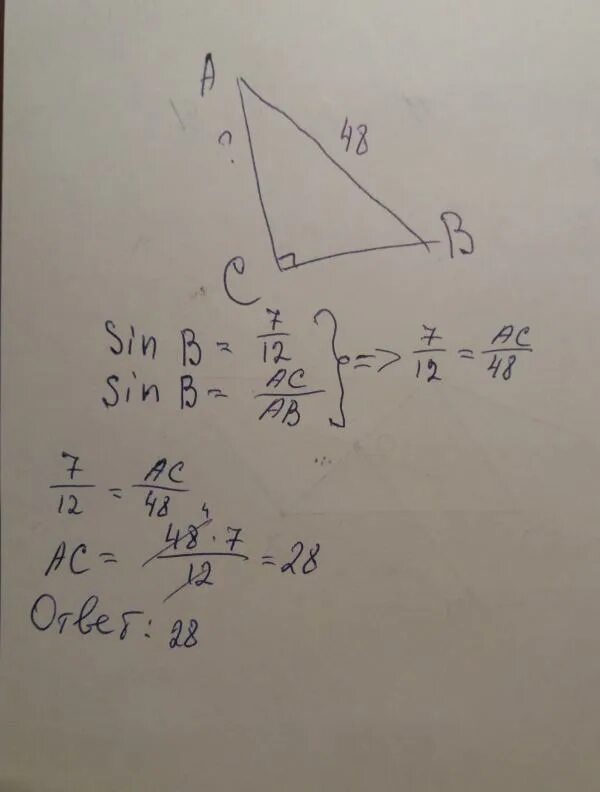 A
?
48
B
C
Sin B = 7/12
Sin B = AC/AB
} => 7/12 = AC/48
7/12 = AC/48
AC = 48·7/12 = 28
4
Ответ: 28